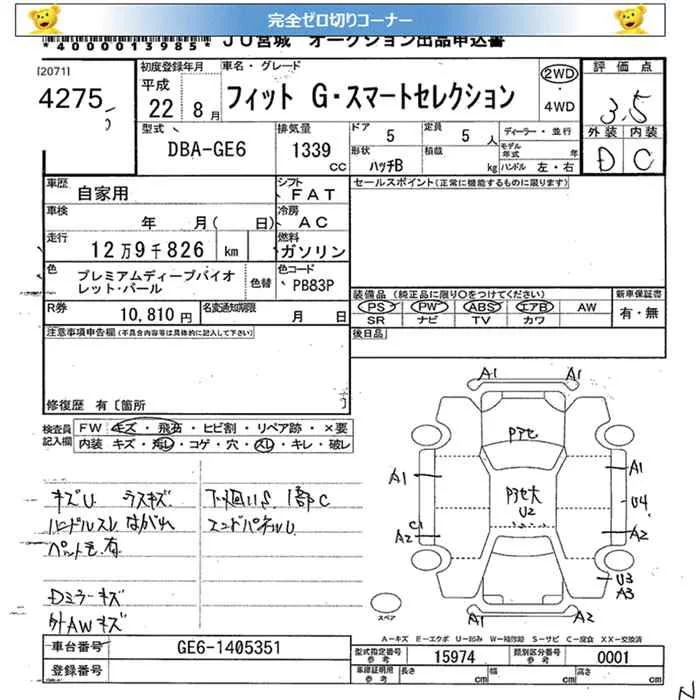 完全ゼロ切りコーナー
*4000013985* JU宮城 オークション出品申込書
[2071]
4275
初度登録年月
平成
22 8月
車名・グレード
フィット G・スマートセレクション
2WD
・
4WD
評価点
3.5
外装 内装
D C
型式
DBA-GE6
排気量
1339
CC
ドア 5 定員 5 人
形状 ハッチB 積載 kg
ディーラー・並行
モデル年式 年
ハンドル 左・右
車歴 自家用
シフト FAT
セールスポイント(正常に機能するものに限ります)
車検 年 月( 日)
冷房 AC
走行 12万9千826 km
燃料 ガソリン
色 プレミアムディープバイオレット・パール
色替
色コード PB83P
装備品 (純正品に限り〇をつけてください)
PS PW ABS エアB AW
SR ナビ TV カワ
新車保証書
有・無
R券 10,810円
名変通知期限 月 日
後日品
注意事項申告欄(不具合内容等は具体的に記入して下さい)
修復歴 有〔箇所 〕
検査員記入欄
FW キズ・飛石・ヒビ割・リペア跡・×要
内装 キズ・汚レ・コゲ・穴・スレ・キレ・破レ
キズU ラスキズ 下廻りS 1部C
ハンドルスレ はがれ エンドパネルU
ペット毛有
Dミラーキズ
外AWキズ
A1 A1
Pアセ
A1 A1
Pアセ大
U2
U4
C1
A2 A2
U3
A3
A1 A2
スペア
A－キズ E－エクボ U－凹み W－補修跡 S－サビ C－腐食 XX－交換済
車台番号 GE6-1405351
登録番号
型式指定番号 参考 15974
類別区分番号 参考 0001
車庫証明用 参考 長さ cm 幅 cm 高さ cm